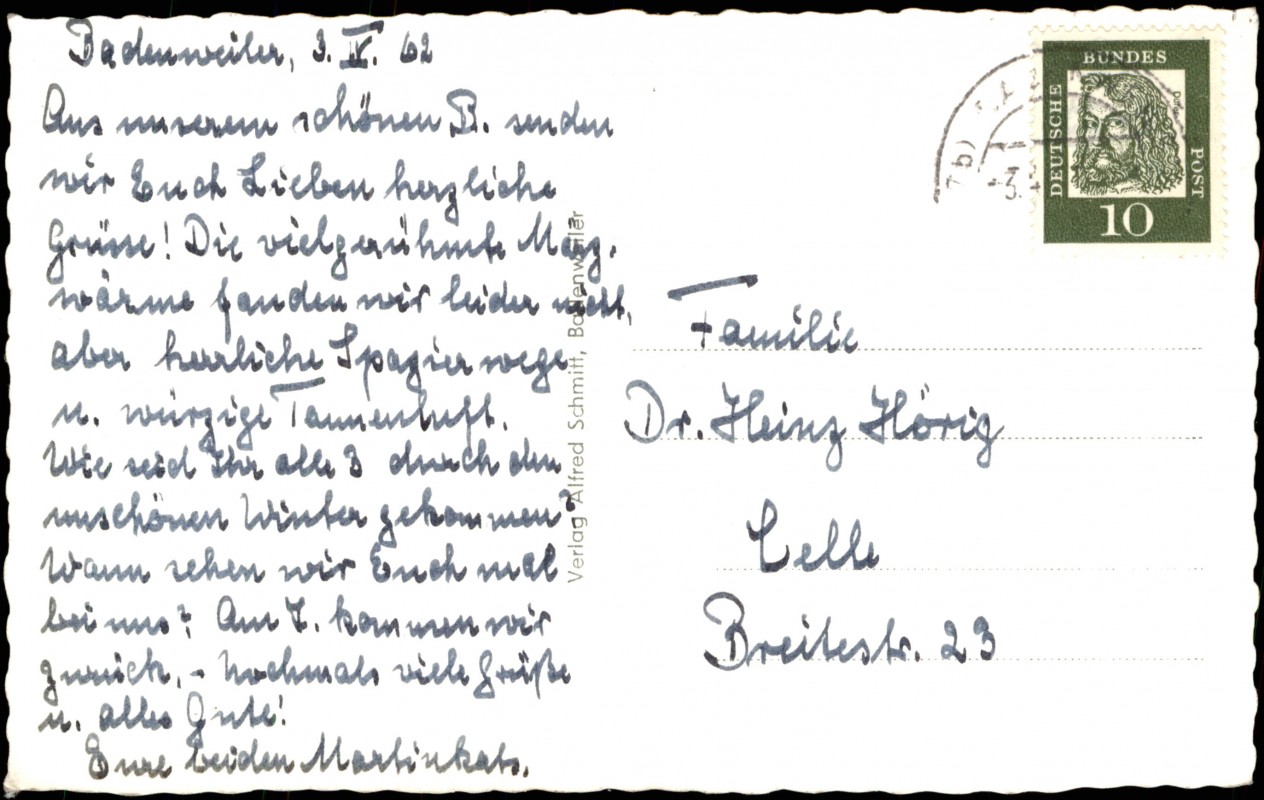 Badenweiler, 3. IV. 62
Aus unserem schönen B. senden
wir Euch Lieben herzliche
Grüsse! Die vielgerühmte März-
wärme fanden wir leider nicht,
aber herrliche Spazierwege
u. würzige Tannenluft.
Wie seid Ihr alle 3 durch den
unschönen Winter gekommen?
Wann sehen wir Euch mal
bei uns? Am 7. kommen wir
zurück. - Nochmals viele Grüße
u. alles Gute!
Eure beiden
Verlag Alfred Schmitt, Badenweiler
DEUTSCHE
BUNDES
POST
10
Familie
Dr. Heinz Hörig
Celle
Breitestr. 23